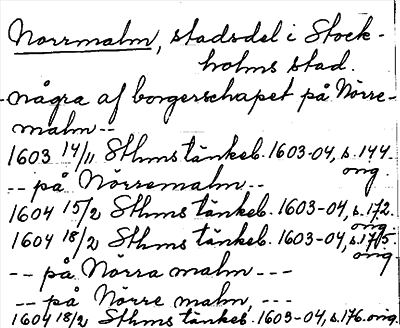 Norrmalm, stadsdel i Stock-
holms stad.
-några af borgerschapet på Nörre-
malm--
1603 14/11 Sthms tänkeb. 1603-04, s. 144.
orig.
-- på Nörremalm--
1604 15/2 Sthms tänkeb. 1603-04, s. 172.
orig
1604 18/2 Sthms tänkeb. 1603-04, s. 175.
orig
-- på Nörra malm ---
-- på Nörre malm, ---
1604 18/2 Sthms tänkeb. 1603-04, s. 176. orig.